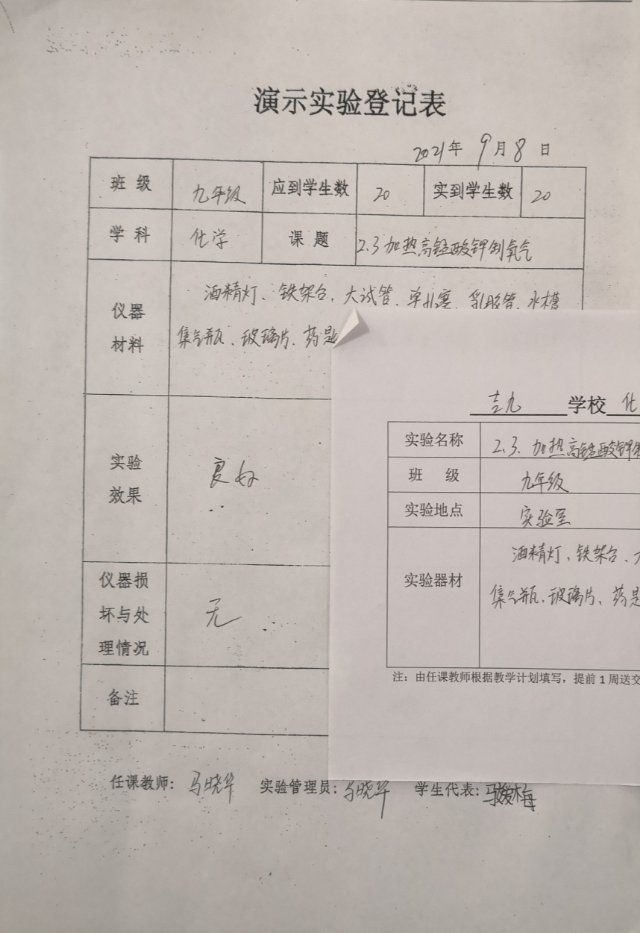 演示实验登记表
2021年 9月8日
班级 九年级 应到学生数 20 实到学生数 20
学科 化学 课题 2.3加热高锰酸钾制氧气
仪器材料
酒精灯、铁架台、大试管、单孔塞、乳胶管、水槽
集气瓶、玻璃片、药匙
实验效果 良好
仪器损坏与处理情况 无
备注
任课教师：马晓华 实验管理员：马晓华 学生代表：
吉九 学校 化
实验名称 2.3.加热高锰酸钾制
班级 九年级
实验地点 实验室
实验器材
酒精灯、铁架台、大
集气瓶、玻璃片、药匙
注：由任课教师根据教学计划填写，提前1周送交